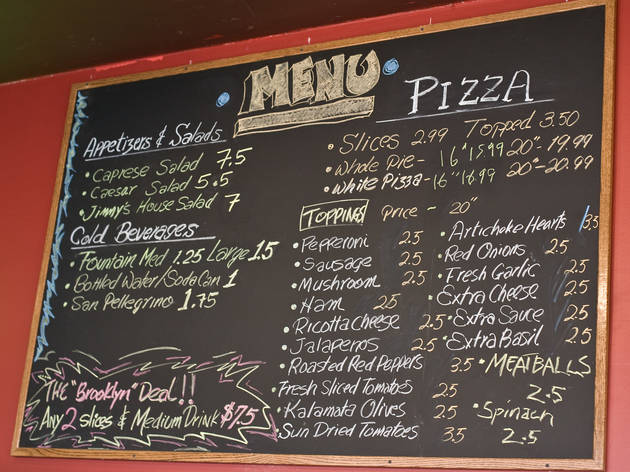 MENU
PIZZA
Appetizers & Salads
• Caprese Salad 7.5
• Caesar Salad 5.5
• Jimmy's House Salad 7
Cold Beverages
• Fountain Med 1.25 Large 1.5
• Bottled Water/Soda Can 1
• San Pellegrino 1.75
THE "Brooklyn" Deal!!
Any 2 slices & Medium Drink $7.5
• Slices 2.99 Topped 3.50
• Whole Pie - 16" 15.99 20" - 19.99
• White Pizza - 16" 18.99 20" - 20.99
TOPPINGS Price - 20"
• Pepperoni 2.5
• Sausage 2.5
• Mushroom 2.5
• Ham 2.5
• Ricotta Cheese 2.5
• Jalapenos 2.5
• Roasted Red Peppers 3.5
• Fresh Sliced Tomatoes 2.5
• Kalamata Olives 2.5
• Sun Dried Tomatoes 3.5
• Artichoke Hearts 3.5
• Red Onions 2.5
• Fresh Garlic 2.5
• Extra Cheese 2.5
• Extra Sauce 2.5
• Extra Basil 2.5
• MEATBALLS
2.5
• Spinach
2.5